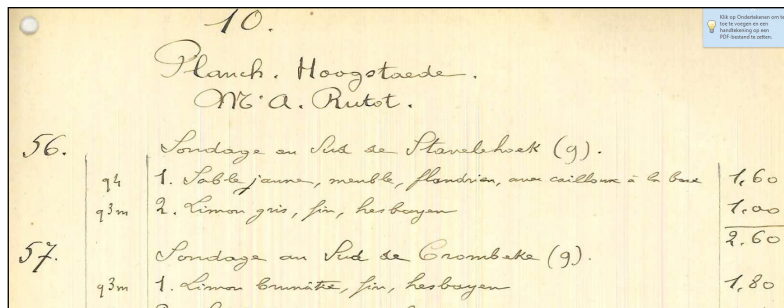 10.
Klik op Ondertekenen om te
toe te voegen en een
handtekening op een
PDF-bestand te zetten.
Planch. Hoogstaede.
Mr. A. Rutot.
56. Sondage au Sud de Stavelehoek (g).
q4 1. Sable jaune, meuble, flandrien, avec cailloux à la base 1,60
q3m 2. Limon gris, fin, hesbayen 1,00
2.60
57. Sondage au Sud de Crombeke (g).
q3m 1. Limon brunâtre, fin, hesbayen 1,80